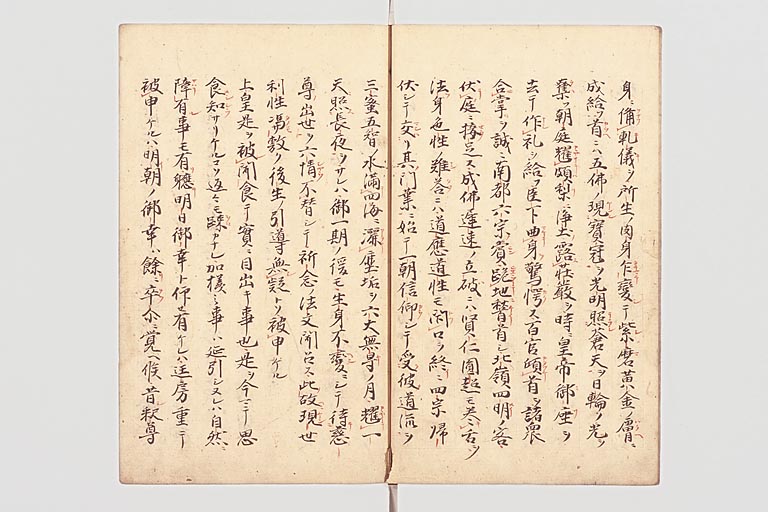 身ニ備軌儀ヲ所生ノ肉身乍變テ紫磨黄金ノ膚ニ
成給ヲ首ニハ五佛ノ現寶冠ヲ光明照蒼天ヲ日輪ノ光ヲ
奪ヲ朝庭耀頗梨ニ淨土露莊嚴ヲ時皇帝御座ヲ
去テ作礼ヲ給ヲ臣下曲身ヲ驚愕ス百官頭首ヲ諸衆
合掌ヲ誠ニ南都六宗賓跪地ニ稽首シ北嶺四明ノ客ハ
伏庭ニ接足ス成佛遲速ノ立破ニハ賢仁圓超モ巻舌ヲ
法身色性難荅ニハ道應道性モ閇口ヲ終ニ四宗歸
伏シテ交リ其門葉ニ始テ一朝信仰シテ受彼道流ヲ
三蜜五智ノ水滿四海ニ濯塵垢ヲ六大無㝵ノ月ハ耀一
天照長夜ヲサレハ御一期ノ後モ生身不變ニシテ待慈
尊ノ出世ヲ六情不替シテ祈念ノ法文聞召ス此故現世
利性ノ馮敷ク後生ノ引導無疑トソ被申ケル
上皇是ヲ被聞食テ實ニ目出キ事也是ヲ今ニテ思
食知サリケルコソ返々モ踈カナレ加樣ニ事ハ延引シヌレハ自然ニ
障有事モ有聴明日御幸ト仰有ケレハ匡房重ニテ
被申ケルハ明朝ノ御幸ハ餘ニ卒尓ニ覺ヘ候昔釈尊